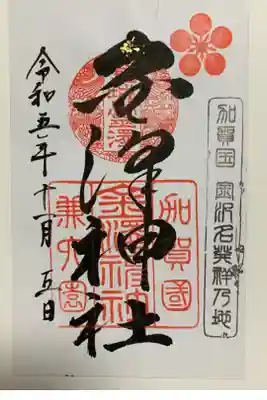 加賀国 金沢名発祥乃地
金澤神社
加賀國
兼六園
令和五年十一月五日